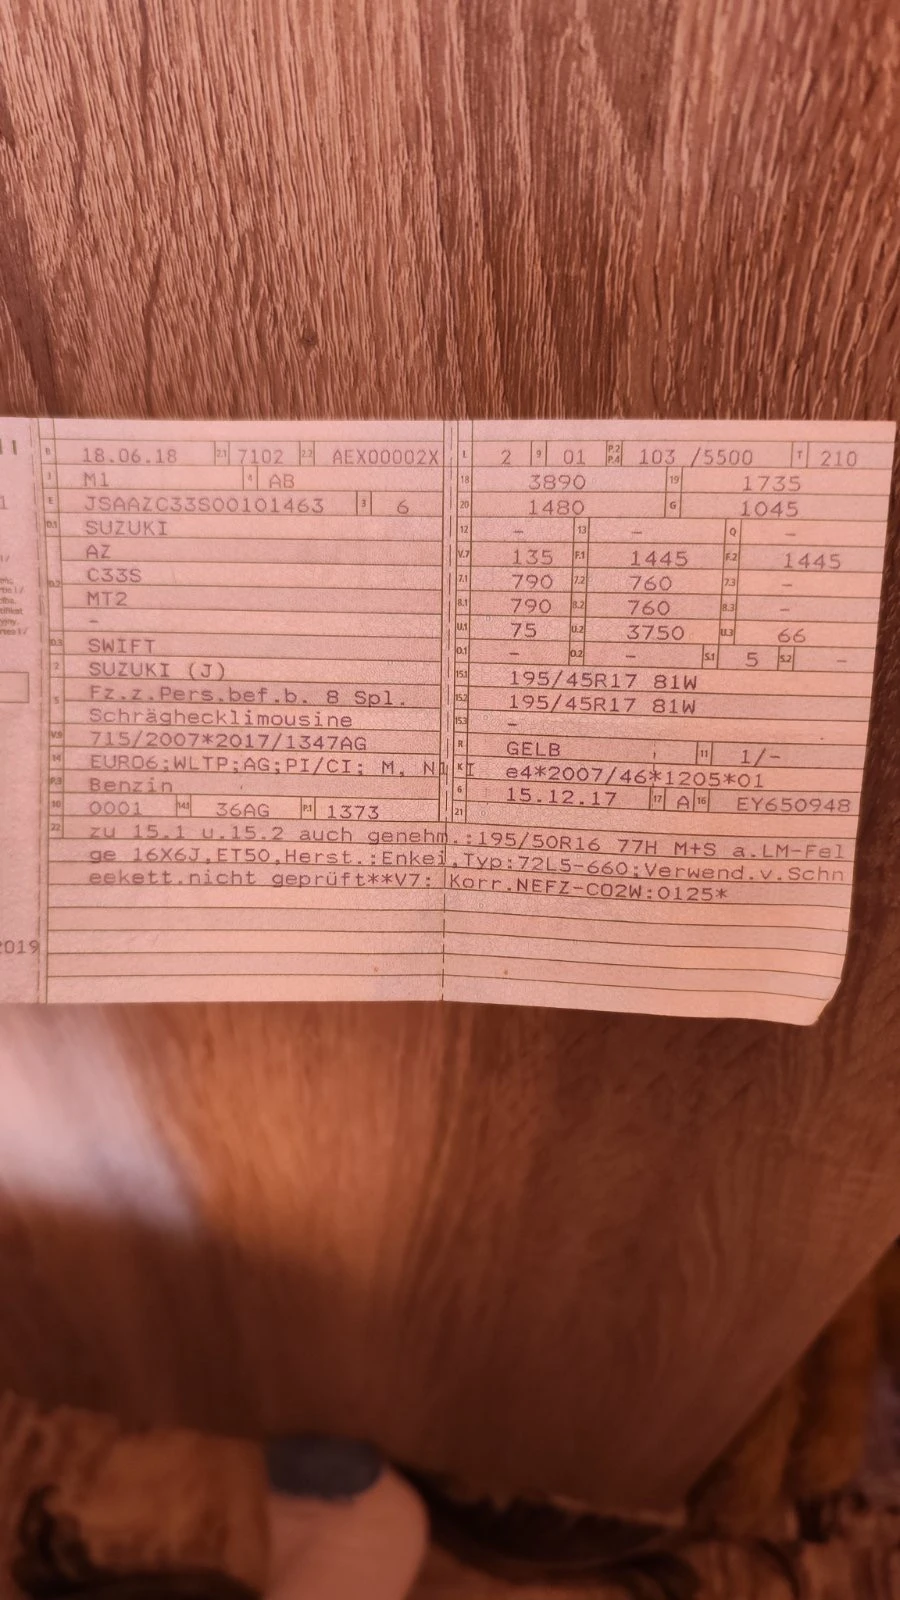 B 18.06.18 2.1 7102 2.2 AEX00002X L 2 9 01 P.2 P.4 103 /5500 T 210
J M1 4 AB 18 3890 19 1735
E JSAAZC33S00101463 3 6 20 1480 G 1045
D.1 SUZUKI 12 – 13 – Q –
AZ V.7 135 F.1 1445 F.2 1445
D.2 C33S 7.1 790 7.2 760 7.3 –
MT2 8.1 790 8.2 760 8.3 –
– U.1 75 U.2 3750 U.3 66
D.3 SWIFT O.1 – O.2 – S.1 5 S.2 –
2 SUZUKI (J) 15.1 195/45R17 81W
5 Fz.z.Pers.bef.b. 8 Spl. 15.2 195/45R17 81W
Schräghecklimousine 15.3 –
V.9 715/2007*2017/1347AG R GELB 11 1/-
14 EURO6;WLTP;AG;PI/CI; M, N1 I K e4*2007/46*1205*01
P.3 Benzin 6 15.12.17 17 A 16 EY650948
10 0001 14.1 36AG P.1 1373 21
22 zu 15.1 u.15.2 auch genehm.:195/50R16 77H M+S a.LM-Fel
ge 16X6J,ET50,Herst.:Enkei,Typ:72L5-660;Verwend.v.Schn
eekett.nicht geprüft**V7: Korr.NEFZ-CO2W:0125*
2019